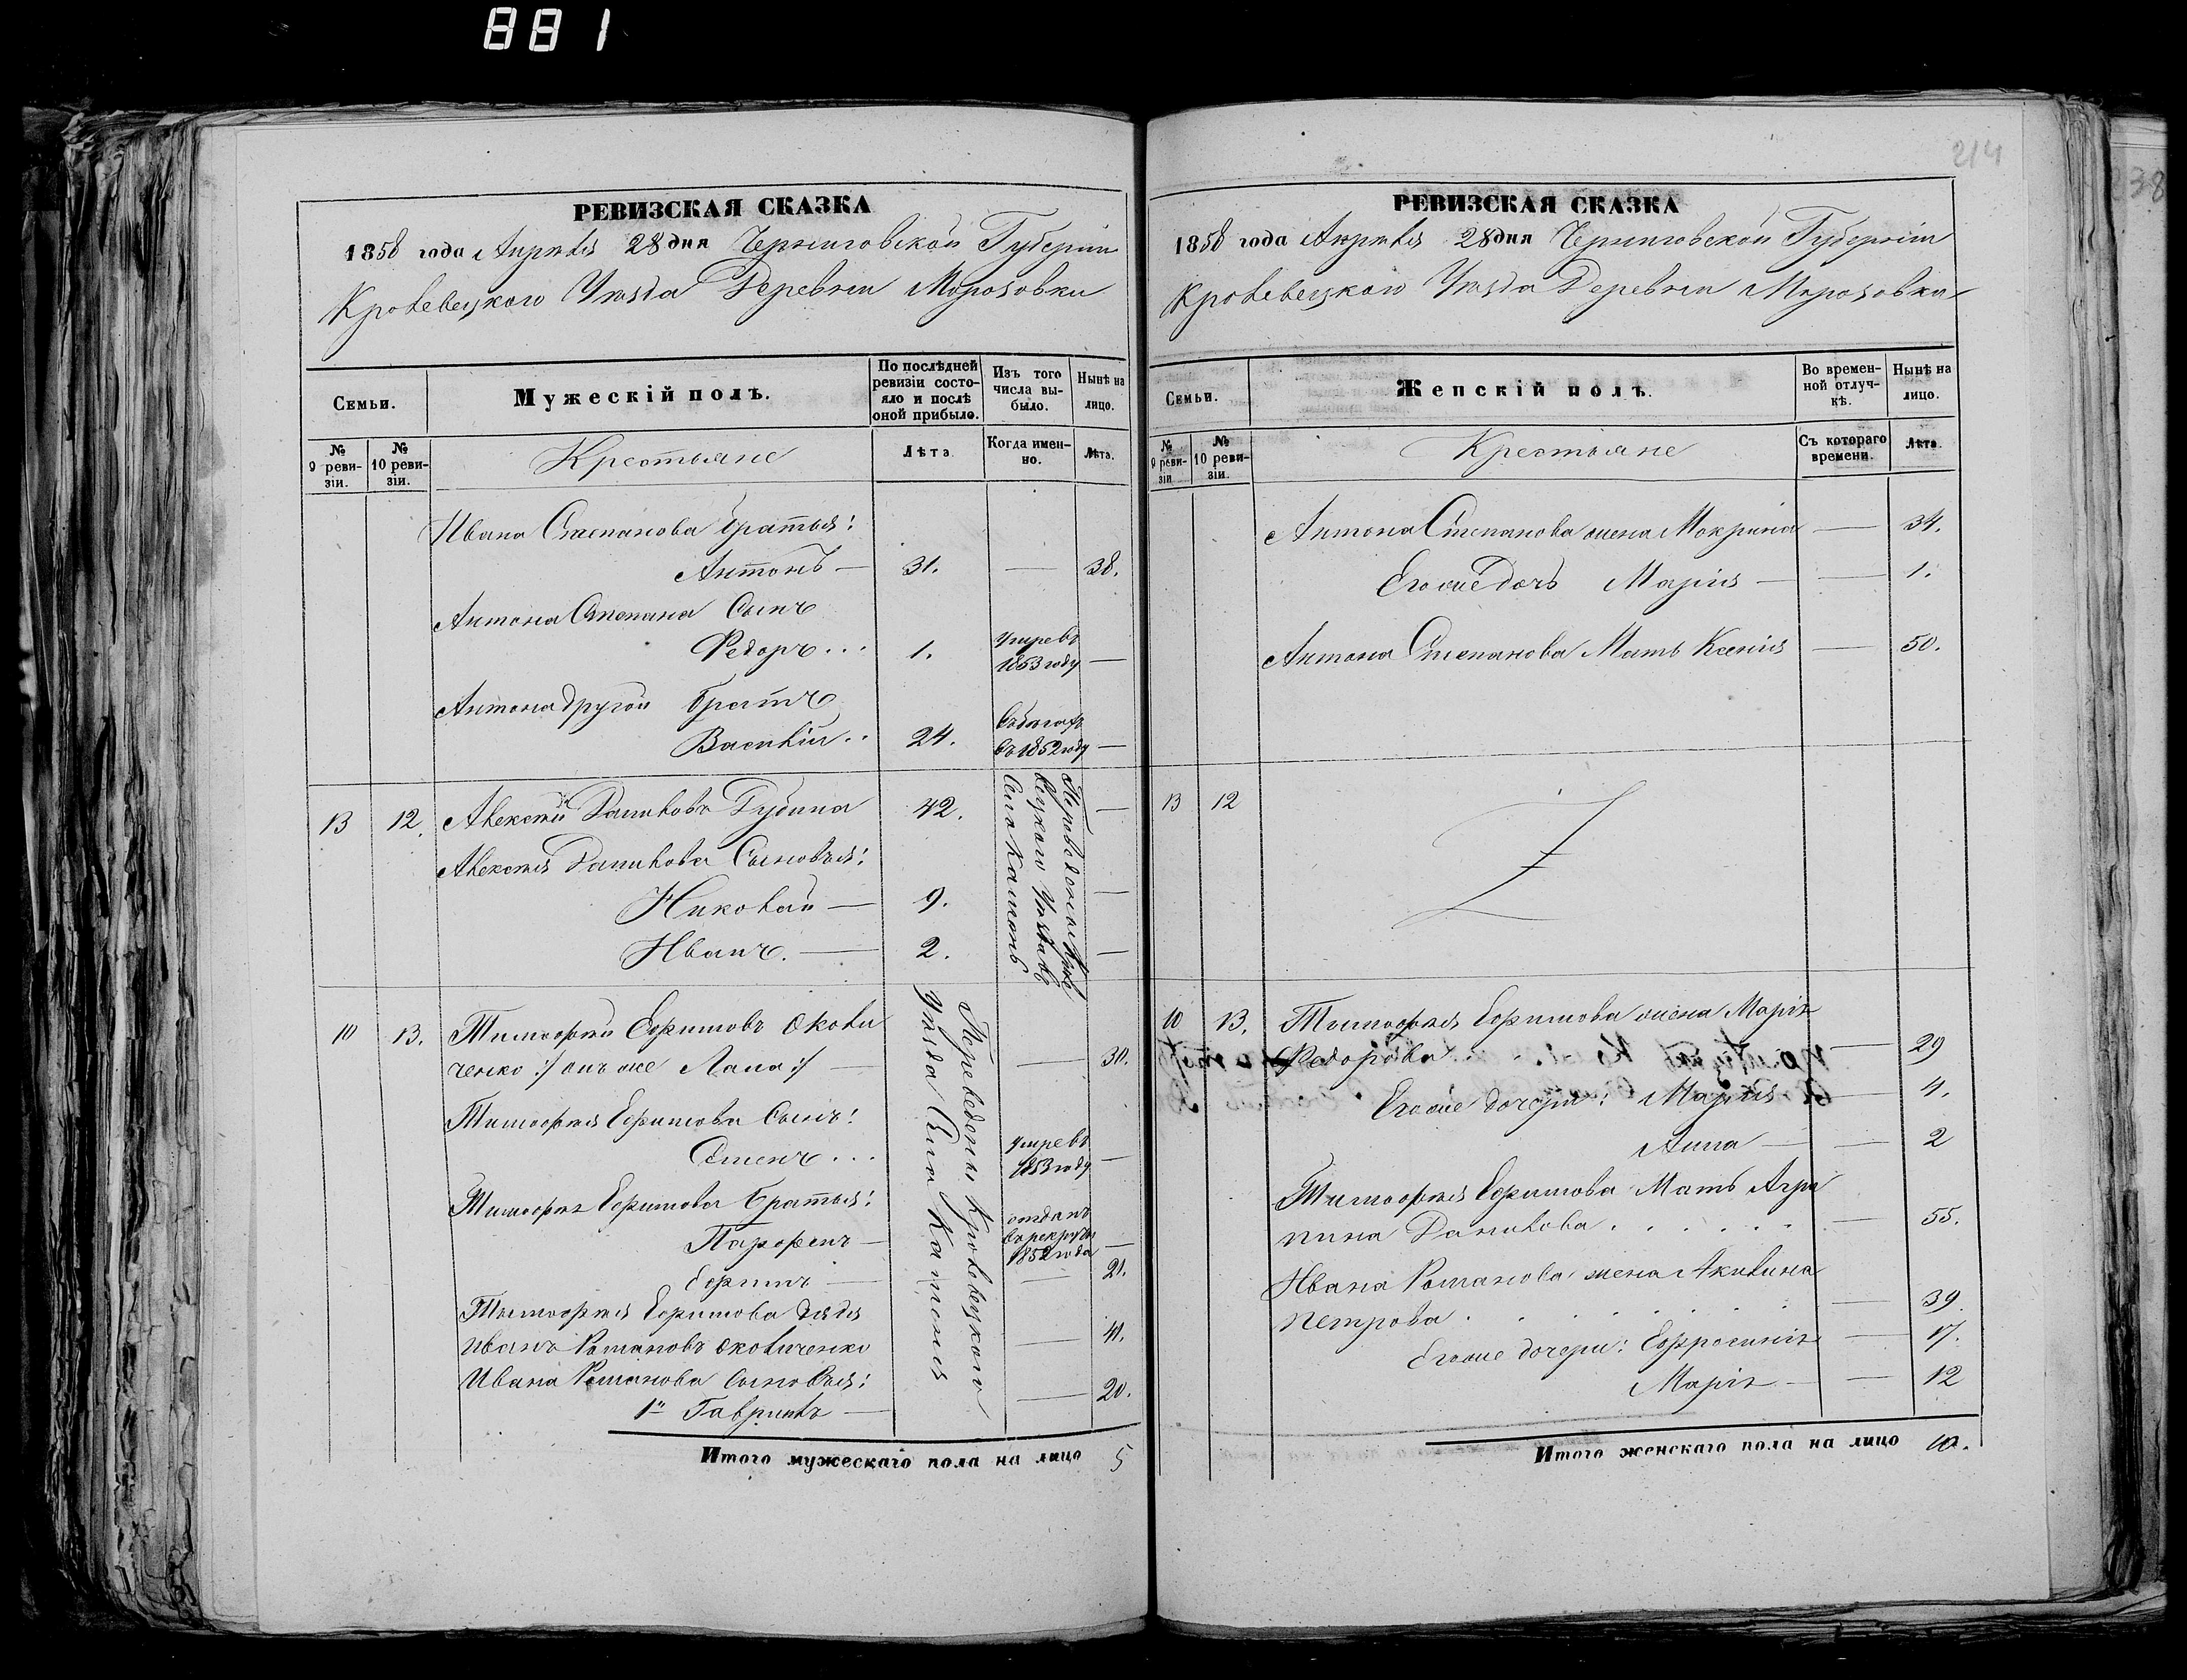 881
214
238
РЕВИЗСКАЯ СКАЗКА
1858 года Апрѣля 28 дня Черниговской Губерніи
Кролевецкаго Уѣзда Деревни Морозовки
Семьи.
Мужескій полъ.
По послѣдней ревизіи состояло и послѣ оной прибыло.
Изъ того числа выбыло.
Нынѣ на лицо.
№ 9 ревизіи.
№ 10 ревизіи.
Крестьяне
Лѣта
Когда именно.
Лѣта.
Ивана Степанова братья:
Антонъ — 31. — 38.
Антона Степана Сынъ
Федоръ... 1. умеръ 1853 году —
Антона другой братъ
Василій.. 24. въ бѣгахъ съ 1852 году —
13 12. Алексѣй Даниловъ Губина 42. —
Алексѣя Данилова Сыновья:
Николай — 9. —
Иванъ. — 2. —
Кролевецкаго Уѣзда въ Село Камень
10 13. Тимофѣй Ефимовъ Околи
ченко :/ онъ же Лапа :/ — — 30.
Тимофѣя Ефимова Сынъ:
Семенъ... умеръ 1853 году —
Тимофѣя Ефимова братья:
Парфенъ — отданъ в рекруты 1852 года —
Ефимъ — — 21.
Тимофѣя Ефимова дядя
Иванъ Романовъ Околиченко — 41.
Ивана Романова Сыновья:
1й Гаврилъ — — 20.
Переведены Кролевецкаго Уѣзда Села Каменя
Итого мужескаго пола на лицо 5
РЕВИЗСКАЯ СКАЗКА
1858 года Апрѣля 28 дня Черниговской Губерніи
Кролевецкаго Уѣзда Деревни Морозовки
Семьи.
Женскій полъ.
Во временной отлучкѣ.
Нынѣ на лицо.
№ 9 ревизіи
№ 10 ревизіи.
Крестьяне
Съ котораго времени.
Лѣта.
Антона Степанова жена Мокрина — 34.
Его же дочь Марія — — 1.
Антона Степанова Мать Ксенія — 50.
13 12
10 13. Тимофѣя Ефимова жена Марія
Федорова — 29
Его же дочери: Марія — 4.
Анна — — 2
Тимофѣя Ефимова Мать Агри
пина Данилова. . . . . . — 55.
Ивана Романова жена Акилина
Петрова . . . . . . — 39.
Его же дочери: Ефросинія — 17.
Марія — — 12
Итого женскаго пола на лицо 10.